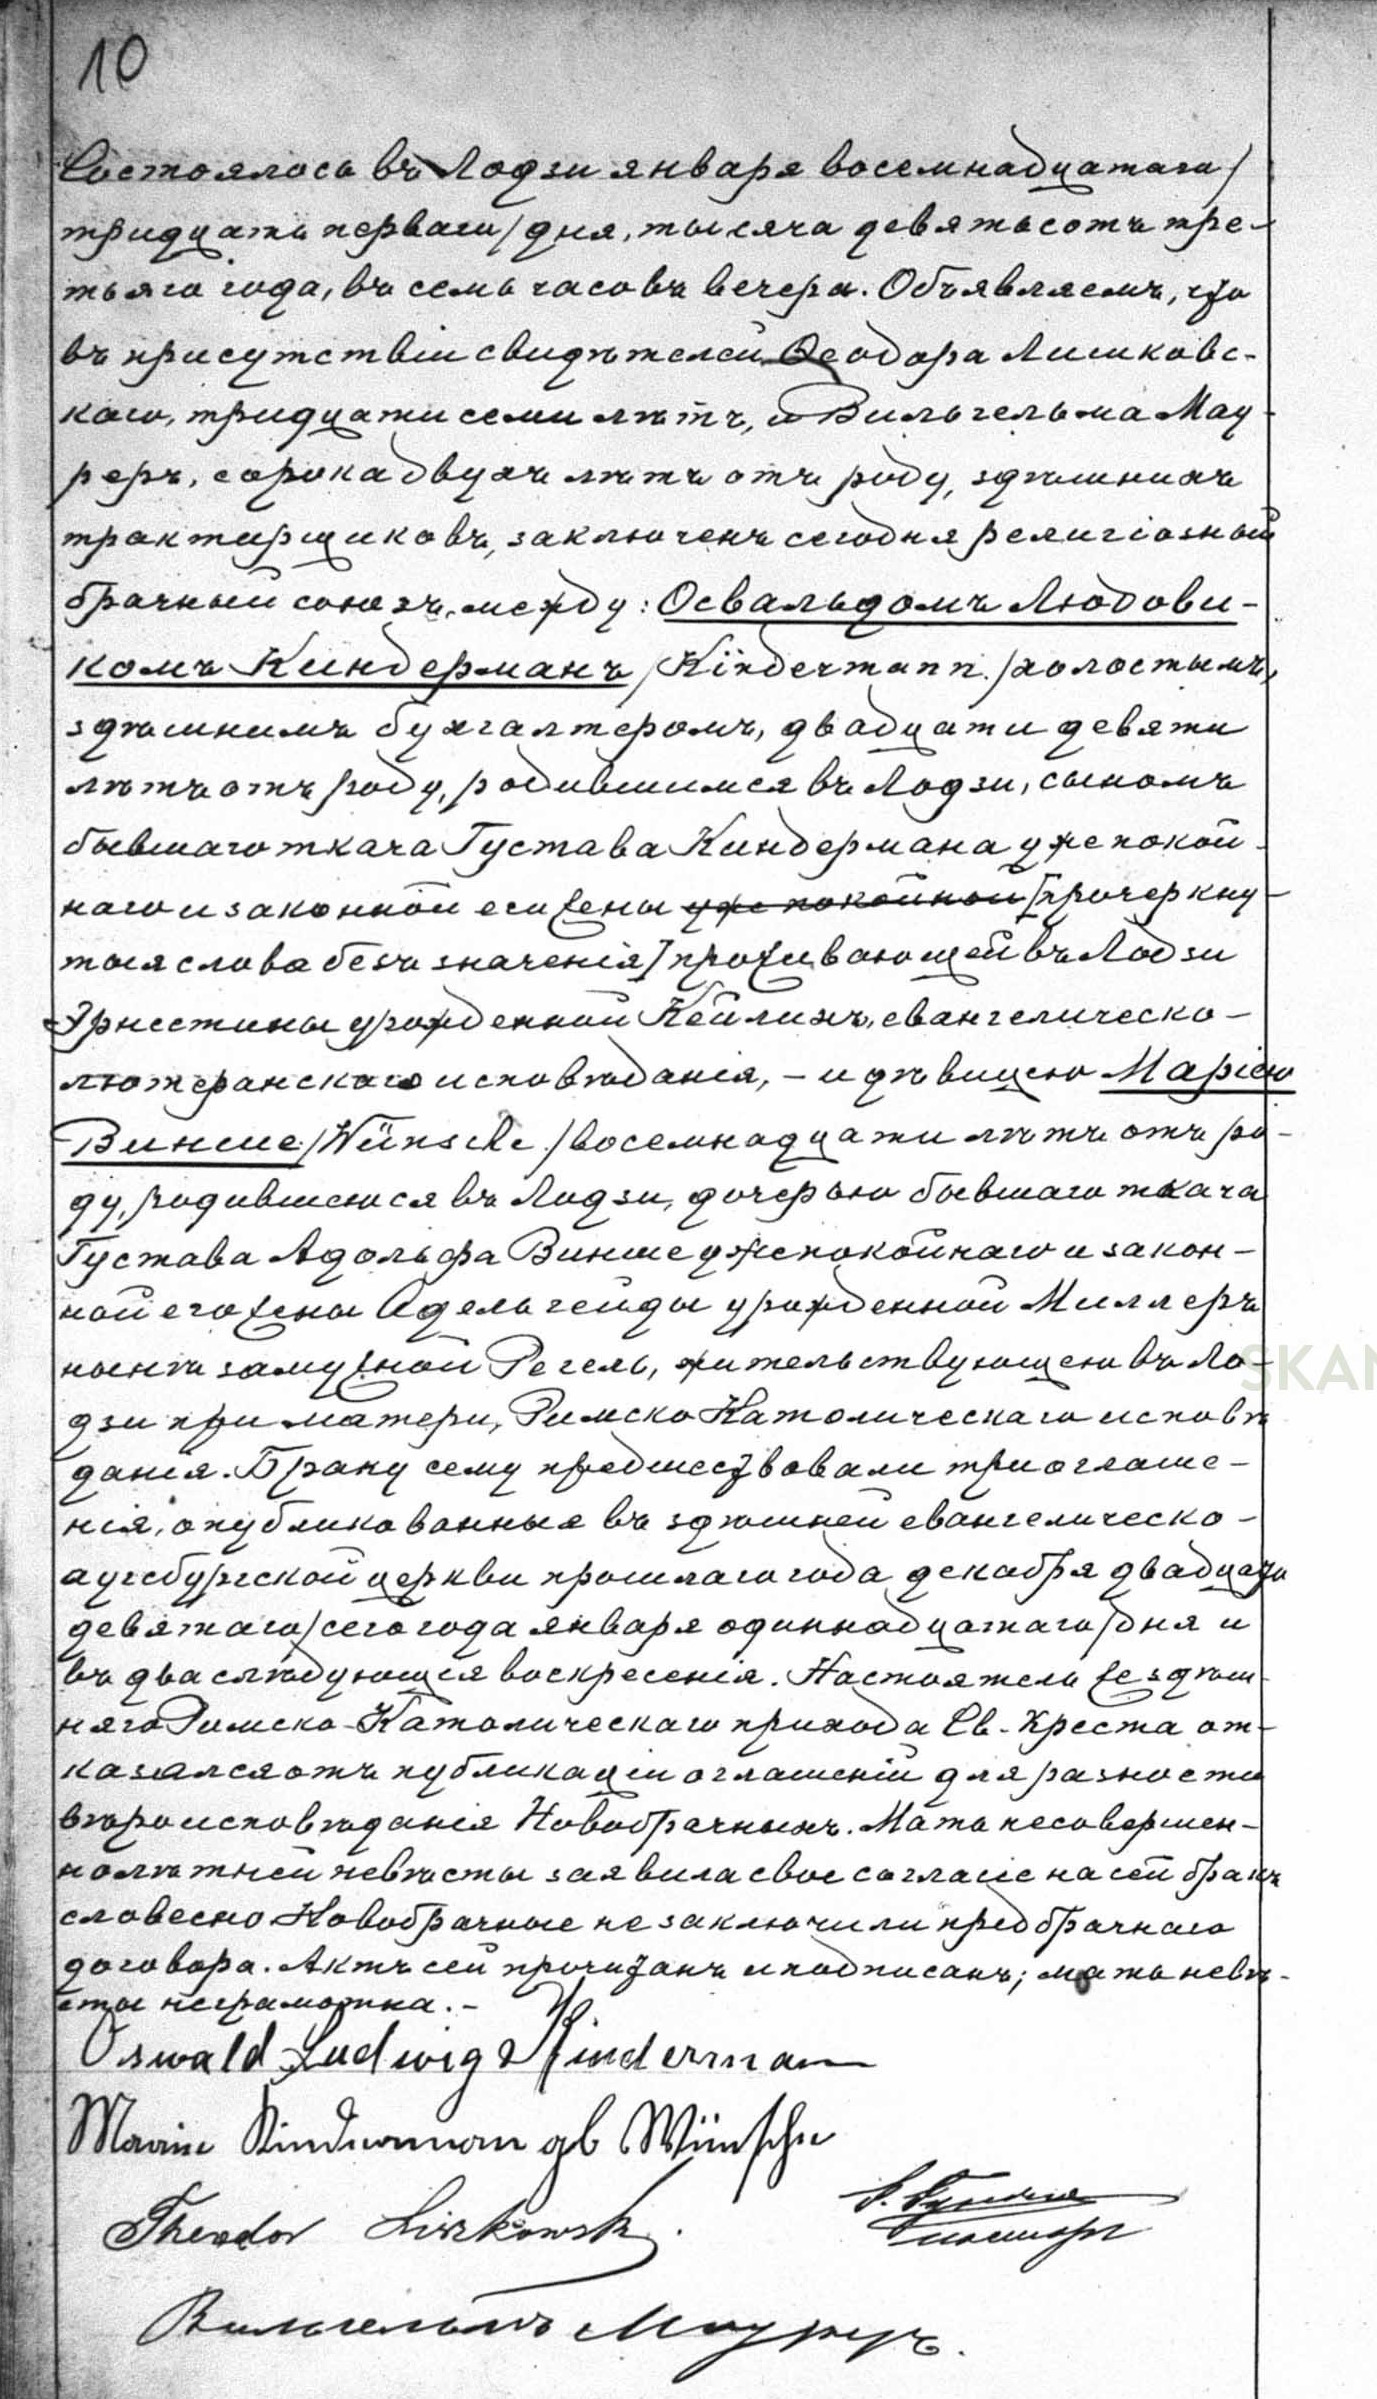 10
Состоялось въ Лодзи января восемнадцатаго/
тридцать перваго/дня, тысяча девятьсотъ тре-
тьяго года, въ семь часовъ вечера. Объявляемъ, что
въ присутствіи свидѣтелей Ѳеодора Лишковс-
каго, тридцати семи лѣтъ, и Вильгельма Мау-
реръ, сорока двухъ лѣтъ отъ роду, здѣшнихъ
трактирщиковъ, заключенъ сегодня религіозный
брачный союзъ, между: Освальдомъ Людови-
комъ Киндерманъ /Kindermann./ холостымъ,
здѣшнимъ бухгалтеромъ, двадцати девяти
лѣтъ отъ роду, родившимся въ Лодзи, сыномъ
бывшаго ткача Густава Киндермана уже покой-
наго и законной его жены уже покойной [прочеркну-
тыя слова безъ значенія] проживающей въ Лодзи
Эрнестины урожденной Кейлихъ, евангелическо-
лютеранскаго исповѣданія, - и дѣвицею Маріею
Винше /Wünsche./ восемнадцати лѣтъ отъ ро-
ду, родившеюся въ Лодзи, дочерью бывшаго ткача
Густава Адольфа Винше уже покойнаго и закон-
ной его жены Адельгейды урожденной Миллеръ
нынѣ замужной Регель, жительствующею въ Ло-
дзи при матери, Римско Католическаго исповѣ
данія. Браку сему предшествовали три оглаше-
нія, опубликованныя въ здѣшней евангелическо-
аугсбургской церкви прошлаго года декабря двадцать
девятаго/сего года января одиннадцатаго/дня и
въ два слѣдующія воскресенія. Настоятель же здѣш-
няго Римско-Католическаго прихода Св. Креста от-
казался отъ публикаціи оглашеній для разности
вѣроисповѣданія Новобрачныхъ. Мать несовершен-
нолѣтней невѣсты заявила свое согласіе на сей бракъ
словесно Новобрачные не заключили предбрачнаго
договора. Актъ сей прочитанъ и подписанъ; мать невѣ-
сты неграмотна.-
Oswald Ludwig Kindermann
Marie Kindermann gb Wünsche
Theodor Liszkowski.
Пасторъ
Вильгельмъ Мауреръ.
SKAN